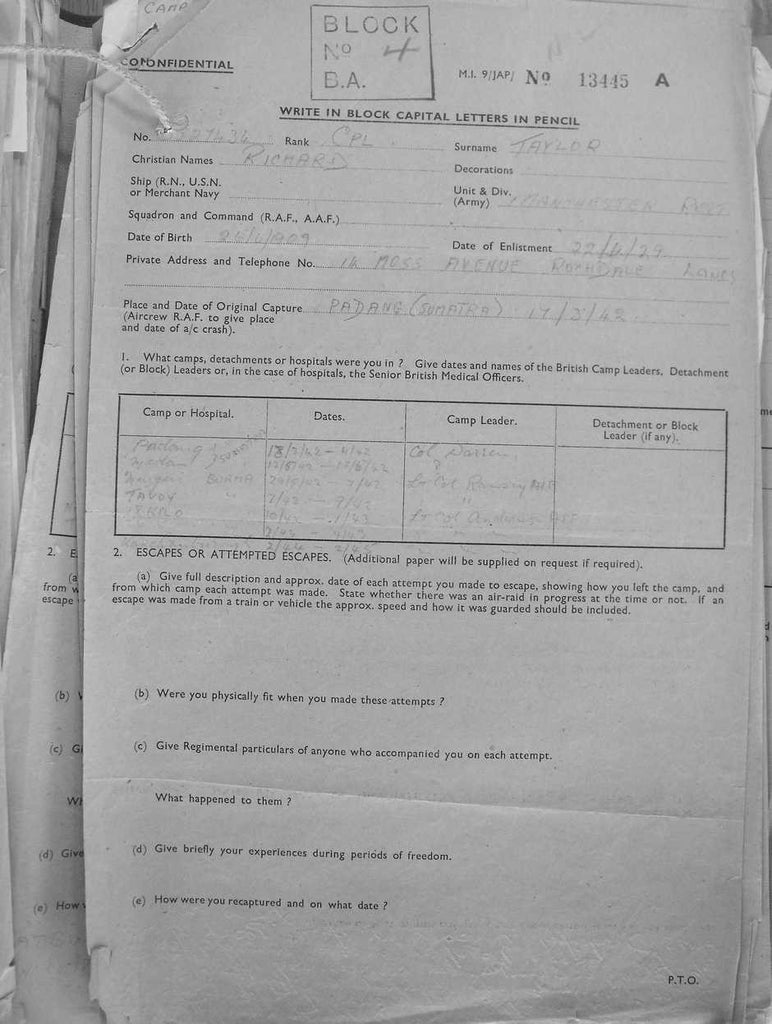 CAMP
BLOCK
No 4
B.A.
CONFIDENTIAL
M.I. 9/JAP/ No 13445 A
WRITE IN BLOCK CAPITAL LETTERS IN PENCIL
No. Rank CPL. Surname TAYLOR
Christian Names RICHARD
Decorations
Ship (R.N., U.S.N.
or Merchant Navy
Unit & Div.
(Army) MANCHESTER
Squadron and Command (R.A.F., A.A.F.)
Date of Birth
Date of Enlistment 22/4/29
Private Address and Telephone No. 14 MOSS AVENUE ROCHDALE LANCS
Place and Date of Original Capture PADANG (SUMATRA) 17/3/42
(Aircrew R.A.F. to give place
and date of a/c crash).
1. What camps, detachments or hospitals were you in ? Give dates and names of the British Camp Leaders, Detachment
(or Block) Leaders or, in the case of hospitals, the Senior British Medical Officers.
Camp or Hospital. Dates. Camp Leader. Detachment or Block
Leader (if any).
Padang Col
?
BURMA Lt Col Ramsay
TAVOY " 7/42 — 9/42 "
Lt Col
2. ESCAPES OR ATTEMPTED ESCAPES. (Additional paper will be supplied on request if required).
(a) Give full description and approx. date of each attempt you made to escape, showing how you left the camp, and
from which camp each attempt was made. State whether there was an air-raid in progress at the time or not. If an
escape was made from a train or vehicle the approx. speed and how it was guarded should be included.
(b) Were you physically fit when you made these attempts ?
(c) Give Regimental particulars of anyone who accompanied you on each attempt.
What happened to them ?
(d) Give briefly your experiences during periods of freedom.
(e) How were you recaptured and on what date ?
P.T.O.
2. E
(a
from w
escape
(b) W
(c) Gi
Wh
(d) Give
(e) How